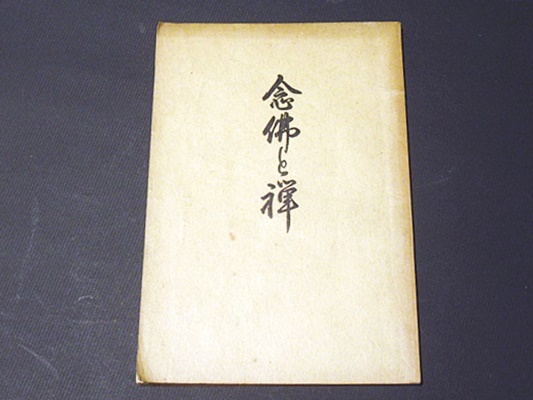 念佛と禅